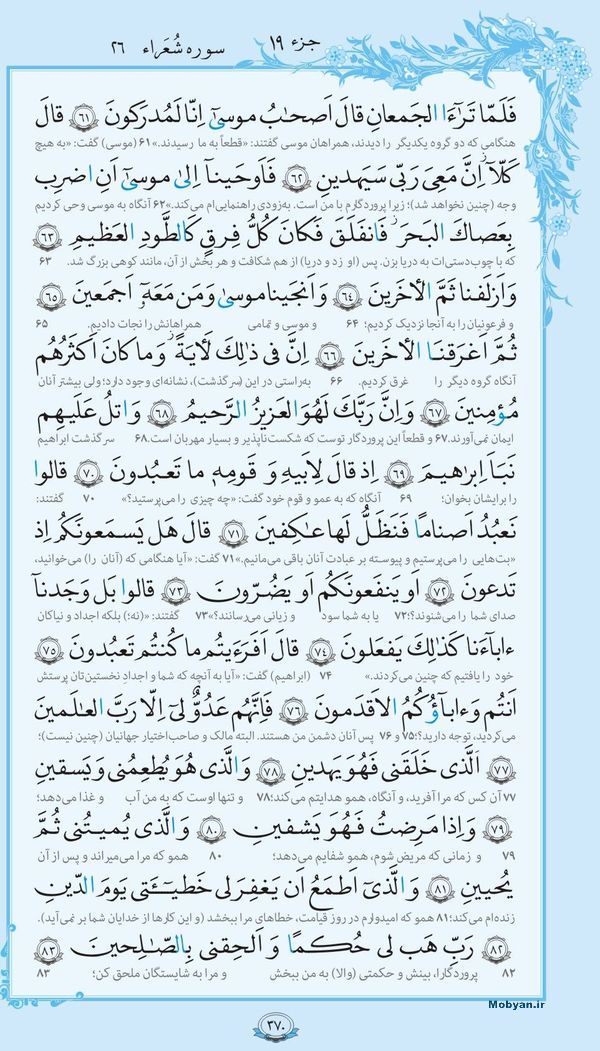 جزء ۱۹ سوره شُعَراء ۲۶
فَلَمّا تَراٰءَا الجَمعانِ قالَ اَصحٰبُ موسیٰٓ اِنّا لَمُدرَکونَ ﴿۶۱﴾ قالَ
هنگامی که دو گروه یکدیگر را دیدند، همراهان موسی گفتند: «قطعاً به ما رسیدند.» ۶۱ (موسی) گفت: «به هیچ
کَلّآ اِنَّ مَعِیَ رَبّی سَیَهدینِ ﴿۶۲﴾ فَاَوحَینآ اِلیٰ موسیٰٓ اَنِ اضرِب
وجه (چنین نخواهد شد)؛ زیرا پروردگارم با من است. به‌زودی راهنمایی‌ام می‌کند.» ۶۲ آنگاه به موسی وحی کردیم
بِعَصاکَ البَحرَ فَانفَلَقَ فَکانَ کُلُّ فِرقٍ کَالطَّودِ العَظیمِ ﴿۶۳﴾
که با چوب‌دستی‌ات به دریا بزن. پس (او زد و دریا) از هم شکافت و هر بخش از آن، مانند کوهی بزرگ شد. ۶۳
وَ اَزلَفنا ثَمَّ الأٰخَرینَ ﴿۶۴﴾ وَ اَنجَینا موسیٰ وَ مَن مَعَهٗٓ اَجمَعینَ ﴿۶۵﴾
و فرعونیان را به آنجا نزدیک کردیم؛ ۶۴ و موسی و تمامی همراهانش را نجات دادیم. ۶۵
ثُمَّ اَغرَقنَا الأٰخَرینَ ﴿۶۶﴾ اِنَّ فی ذٰلِکَ لَأٰیَةً وَ ما کانَ اَکثَرُهُم
آنگاه گروه دیگر را غرق کردیم. ۶۶ به‌راستی در این (سرگذشت)، نشانه‌ای وجود دارد؛ ولی بیشتر آنان
مُؤمِنینَ ﴿۶۷﴾ وَ اِنَّ رَبَّکَ لَهُوَ العَزیزُ الرَّحیمُ ﴿۶۸﴾ وَ اتلُ عَلَیهِم
ایمان نمی‌آورند. ۶۷ و قطعاً این پروردگار توست که شکست‌ناپذیر و بسیار مهربان است. ۶۸ سرگذشت ابراهیم
نَبَاَ اِبرٰهیمَ ﴿۶۹﴾ اِذ قالَ لِاَبیهِ وَ قَومِهٖ ما تَعبُدونَ ﴿۷۰﴾ قالوا
را برایشان بخوان؛ ۶۹ آنگاه که به عمو و قوم خود گفت: «چه چیزی را می‌پرستید؟» ۷۰ گفتند:
نَعبُدُ اَصنامًا فَنَظَلُّ لَها عٰکِفینَ ﴿۷۱﴾ قالَ هَل یَسمَعونَکُم اِذ
«بت‌هایی را می‌پرستیم و پیوسته بر عبادت آنان باقی می‌مانیم.» ۷۱ گفت: «آیا هنگامی که (آنان را) می‌خوانید،
تَدعونَ ﴿۷۲﴾ اَو یَنفَعونَکُم اَو یَضُرّونَ ﴿۷۳﴾ قالوا بَل وَجَدنآ
صدای شما را می‌شنوند؟؛ ۷۲ یا به شما سود و زیانی می‌رسانند؟» ۷۳ گفتند: «(نه؛) بلکه اجداد و نیاکان
ءابآءَنا کَذٰلِکَ یَفعَلونَ ﴿۷۴﴾ قالَ اَفَرَءَیتُم ما کُنتُم تَعبُدونَ ﴿۷۵﴾
خود را یافتیم که چنین می‌کردند.» ۷۴ (ابراهیم) گفت: «آیا به آنچه که شما و اجدادِ نخستین‌تان پرستش
اَنتُم وَ ءابآؤُکُمُ الاَقدَمونَ ﴿۷۶﴾ فَاِنَّهُم عَدُوٌّ لیٓ اِلّا رَبَّ العٰلَمینَ
می‌کردید، توجه دارید؟؛ ۷۵ و ۷۶ پس آنان دشمن من هستند. البته مالک و صاحب‌اختیار جهانیان (چنین نیست)؛
﴿۷۷﴾ اَلَّذی خَلَقَنی فَهُوَ یَهدینِ ﴿۷۸﴾ وَ الَّذی هُوَ یُطعِمُنی وَ یَسقینِ
۷۷ آن کس که مرا آفرید، و آنگاه، همو هدایتم می‌کند؛ ۷۸ و تنها اوست که به من آب و غذا می‌دهد؛
﴿۷۹﴾ وَ اِذا مَرِضتُ فَهُوَ یَشفینِ ﴿۸۰﴾ وَ الَّذی یُمیتُنی ثُمَّ
۷۹ و زمانی که مریض شوم، همو شفایم می‌دهد؛ ۸۰ همو که مرا می‌میراند و پس از آن
یُحیینِ ﴿۸۱﴾ وَ الَّذیٓ اَطمَعُ اَن یَغفِرَ لی خَطیٓـَٔتی یَومَ الدّینِ
زنده‌ام می‌کند؛ ۸۱ همو که امیدوارم در روز قیامت، خطاهای مرا ببخشد (و این کارها از خدایان شما بر نمی‌آید).
﴿۸۲﴾ رَبِّ هَب لی حُکمًا وَ اَلحِقنی بِالصّٰلِحینَ ﴿۸۳﴾
۸۲ پروردگارا، بینش و حکمتی (والا) به من ببخش و مرا به شایستگان ملحق کن؛ ۸۳
Mobyan.ir
۳۷۰